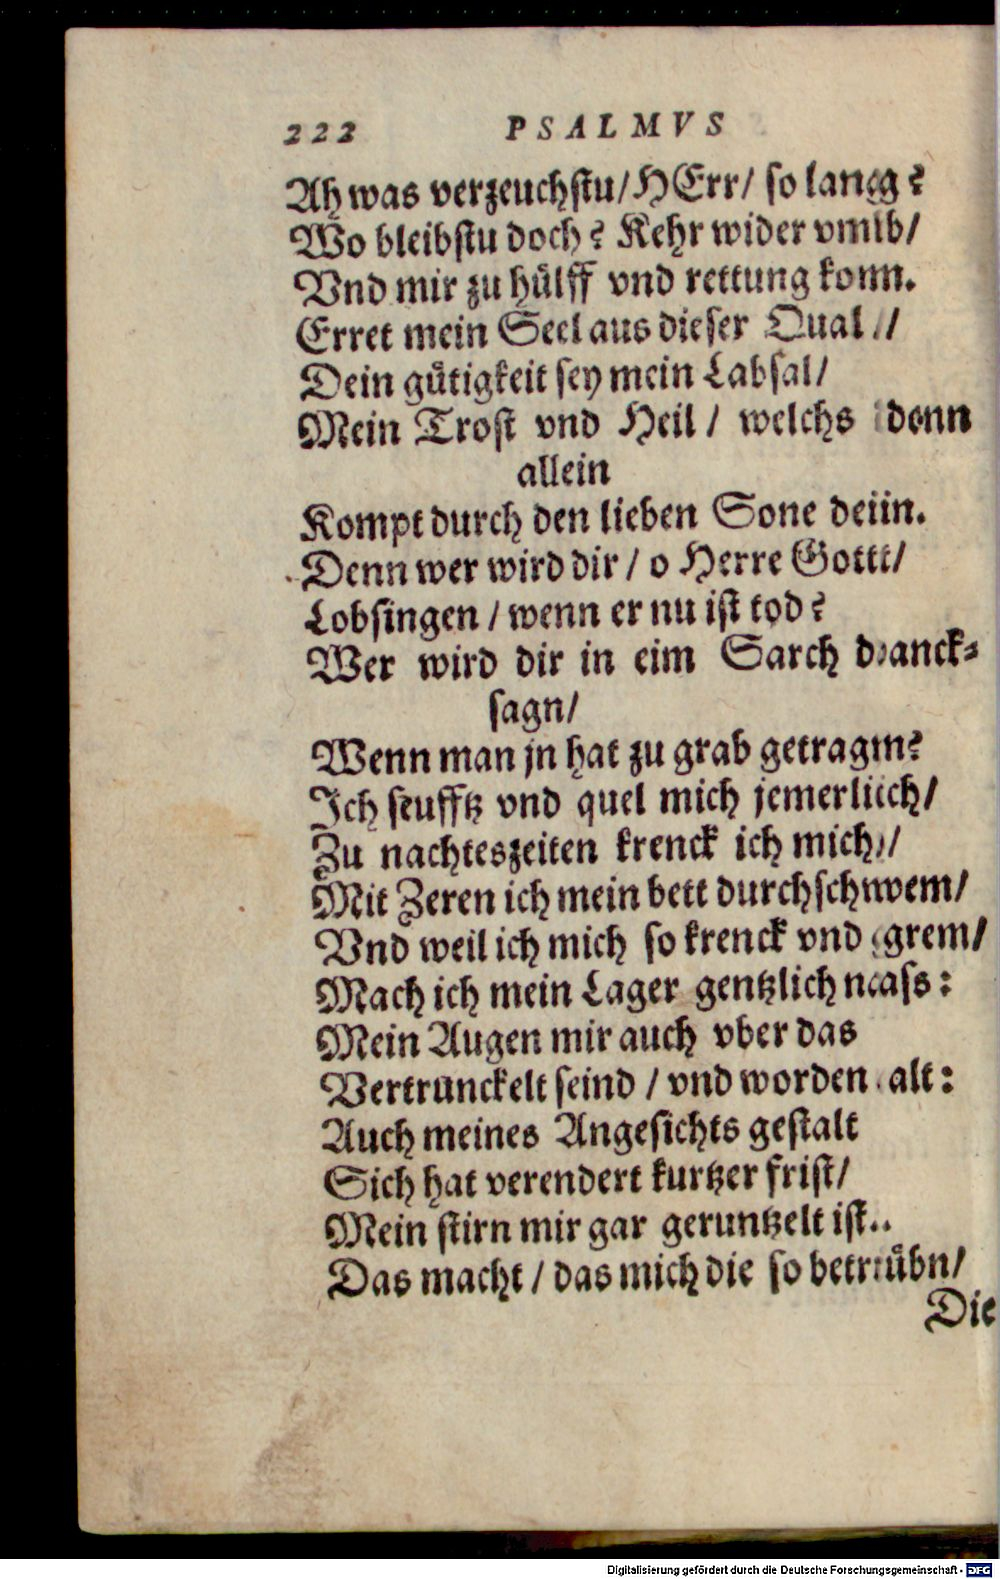 222 PSALMVS
Ah was verzeuchstu/HErr/ so lang?
Wo bleibstu doch? Kehr wider vmb/
Vnd mir zu hülff vnd rettung komm.
Erret mein Seel aus dieser Qual/
Dein gütigkeit sey mein Labsal/
Mein Trost vnd Heil / welchs denn
allein
Kompt durch den lieben Sone dein.
Denn wer wird dir / o Herre Gott/
Lobsingen / wenn er nu ist tod?
Wer wird dir in eim Sarch danck⸗
sagn/
Wenn man jn hat zu grab getragn?
Ich seufftz vnd quel mich jemerlich/
Zu nachteszeiten krenck ich mich/
Mit Zeren ich mein bett durchschwem/
Vnd weil ich mich so krenck vnd grem/
Mach ich mein Lager gentzlich nass:
Mein Augen mir auch vber das
Vertrunckelt seind / vnd worden alt:
Auch meines Angesichts gestalt
Sich hat verendert kurtzer frist/
Mein stirn mir gar geruntzelt ist.
Das macht / das mich die so betrübn/
Die
Digitalisierung gefördert durch die Deutsche Forschungsgemeinschaft - DFG